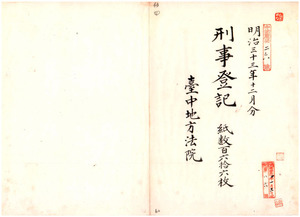 明治三十三年十二月分
刑事登記
紙数百六拾六枚
臺中地方法院